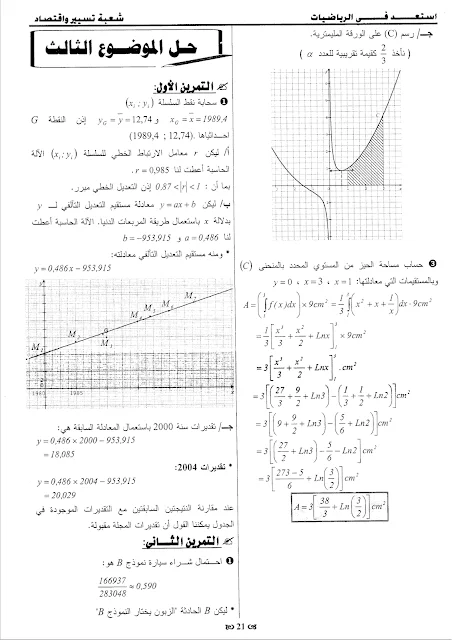 استعد فى الرياضيات
شعبة تسيير واقتصاد
حل الموضوع الثالث
التمرين الأول:
❶ سحابة نقط السلسلة (xᵢ ; yᵢ)
x_G = x̄ = 1989,4 و y_G = ȳ = 12,74 إذن النقطة G
احداثياها (1989,4 ; 12,74).
أ/ ليكن r معامل الارتباط الخطي للسلسلة (xᵢ ; yᵢ) الآلة
الحاسبة أعطت لنا r = 0,985.
بما أن : 0,87 < |r| < 1 إذن التعديل الخطي مبرر.
ب/ ليكن y = ax + b معادلة مستقيم التعديل التآلفي لـ y
بدلالة x باستعمال طريقة المربعات الدنيا. الآلة الحاسبة أعطت
لنا a = 0,486 و b = -953,915
* ومنه مستقيم التعديل التآلفي معادلته:
y = 0,486x - 953,915
M₁
M
M
G
M₅
M
M
M
1980
1985
جـ/ تقديرات سنة 2000 باستعمال المعادلة السابقة هي:
y = 0,486 × 2000 - 953,915
= 18,085
* تقديرات 2004:
y = 0,486 × 2004 - 953,915
= 20,029
عند مقارنة النتيجتين السابقتين مع التقديرات الموجودة في
الجدول يمكننا القول أن تقديرات المجلة مقبولة.
التمرين الثاني:
❶ احتمال شراء سيارة نموذج B هو:
166937/283048 ≈ 0,590
* ليكن B الحادثة "الزبون يختار النموذج B"
جـ/ رسم (C) على الورقة المليمترية.
( نأخذ 2/3 كقيمة تقريبية للعدد α )
C
❸ حساب مساحة الحيز من المستوي المحدد بالمنحنى (C)
وبالمستقيمات التي معادلتها: x = 1 ، x = 3 ، y = 0
A = (∫₁³ f(x)dx) × 9cm² = 1/3 ∫₁³ (x² + x + 1/x) dx · 9cm²
= 1/3 [x³/3 + x²/2 + Lnx]₁³ × 9cm²
= 3 [x³/3 + x²/2 + Lnx]₁³ .cm²
= 3[(27/3 + 9/2 + Ln3) - (1/3 + 1/2 + Ln2)]cm²
= 3[(9 + 9/2 + Ln3) - (5/6 + Ln2)]cm²
= 3[(27/2 + Ln3) - 5/6 - Ln2]cm²
= 3[273-5/6 + Ln(3/2)]cm²
A = 3[38/3 + Ln(3/2)]cm²
21